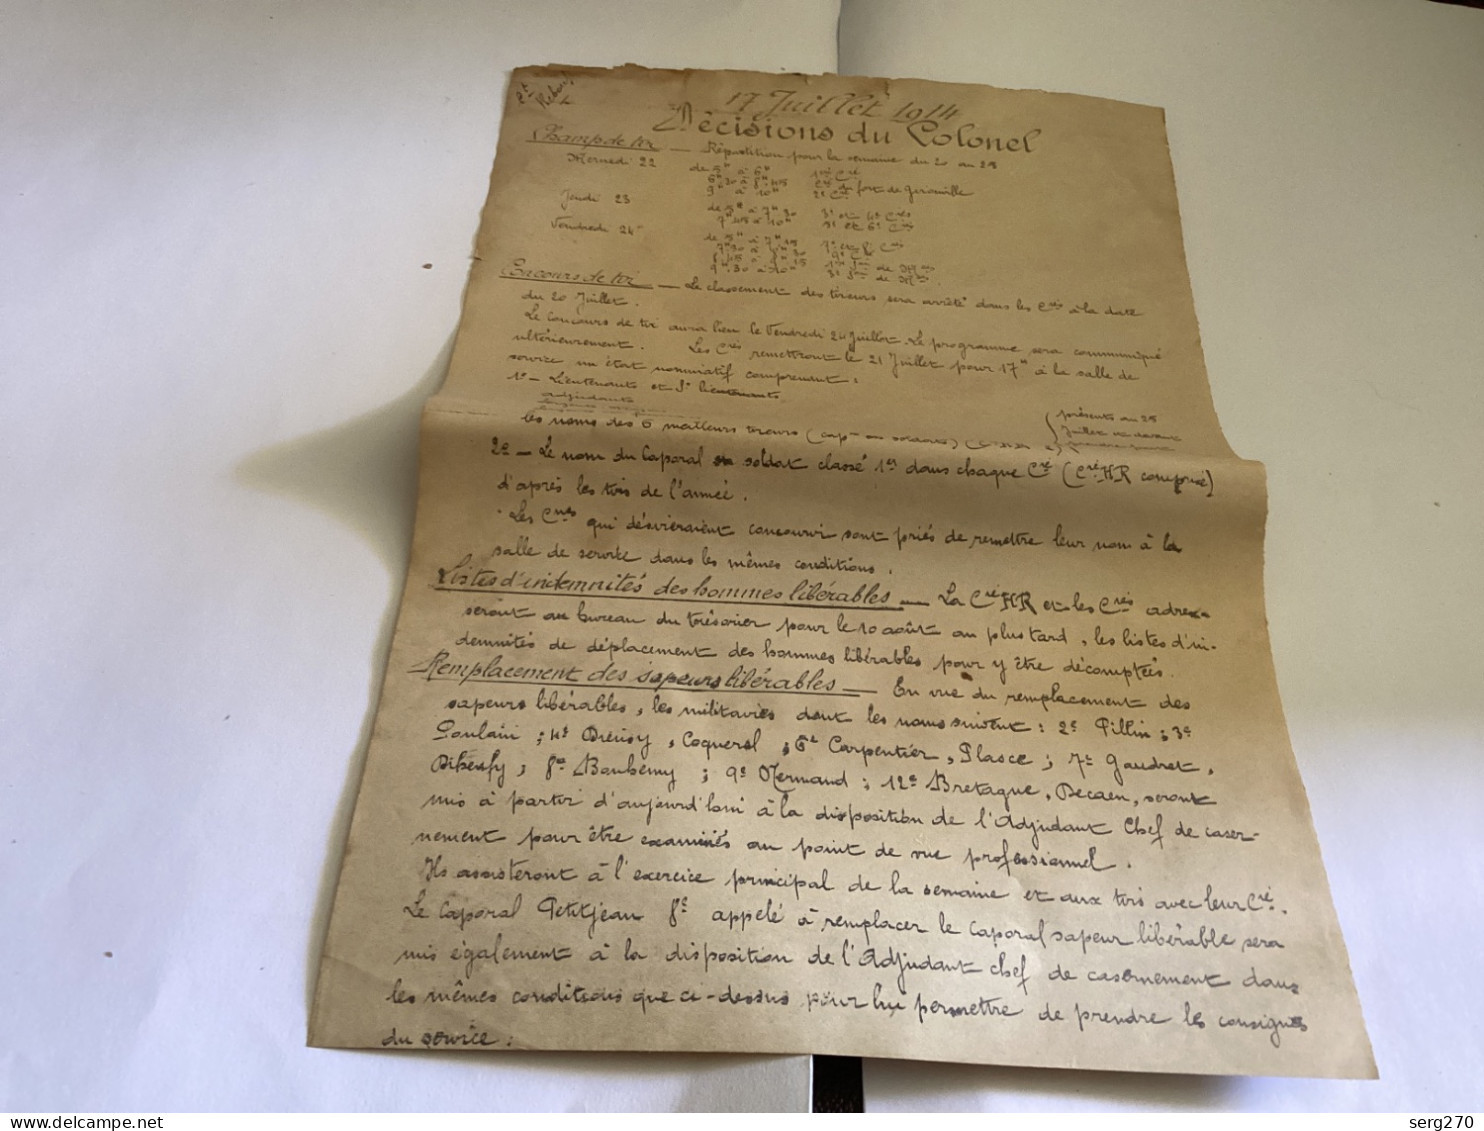 17 Juillet 1914
Décisions du Colonel
Champ de tir — Répartition pour la semaine du 20 au 25
Mercredi 22 de 5h à 6h 1ère Cie
6h30 à 8h45 Cie du fort de Gironville
9h à 10h 2e Cie
Jeudi 23 de 5h à 7h30 3e et 4e Cies
7h45 à 10h 5e et 6e Cies
Vendredi 24 de 5h à 7h15 7e et 8e Cies
de Mses
9h30 à 10h15 3e Son de Mses
Concours de tir — Le classement des tireurs sera arrêté dans les Cies à la date
du 20 Juillet.
Le concours de tir aura lieu le Vendredi 24 Juillet. Le programme sera communiqué
ultérieurement. Les Cies remettront le 21 Juillet pour 17h à la salle de
service un état nominatif comprenant :
1º — Lieutenants et S/ lieutenants
adjudants
les noms des 6 meilleurs tireurs (cap- ou soldats) présents au 25
Juillet
2º — Le nom du Caporal ou soldat classé 1er dans chaque Cie (Cie HR comprise)
d'après les tirs de l'année.
Les Cnes qui désireraient concourir sont priés de remettre leur nom à la
salle de service dans les mêmes conditions.
Listes d'indemnités des hommes libérables — La Cie HR et les Cies adres-
seront au bureau du trésorier pour le 10 août au plus tard, les listes d'in-
demnités de déplacement des hommes libérables pour y être décomptées.
Remplacement des sapeurs libérables — En vue du remplacement des
sapeurs libérables, les militaires dont les noms suivent : 2e Pillin ; 3e
Poulain ; 4e Drévisy, Coquerel ; 6e Carpentier, Plasce ; 7e Gaudret,
8e Bauhemy ; 9e Mermand ; 12e Bretagne, Decaen, seront
mis à partir d'aujourd'hui à la disposition de l'Adjudant Chef de caser-
nement pour être examinés au point de vue professionnel.
Ils assisteront à l'exercice principal de la semaine et aux tirs avec leur Cie.
Le Caporal Petitjean 8e appelé à remplacer le caporal sapeur libérable sera
mis également à la disposition de l'Adjudant chef de casernement dans
les mêmes conditions que ci-dessus pour lui permettre de prendre les consignes
du service.
serg270